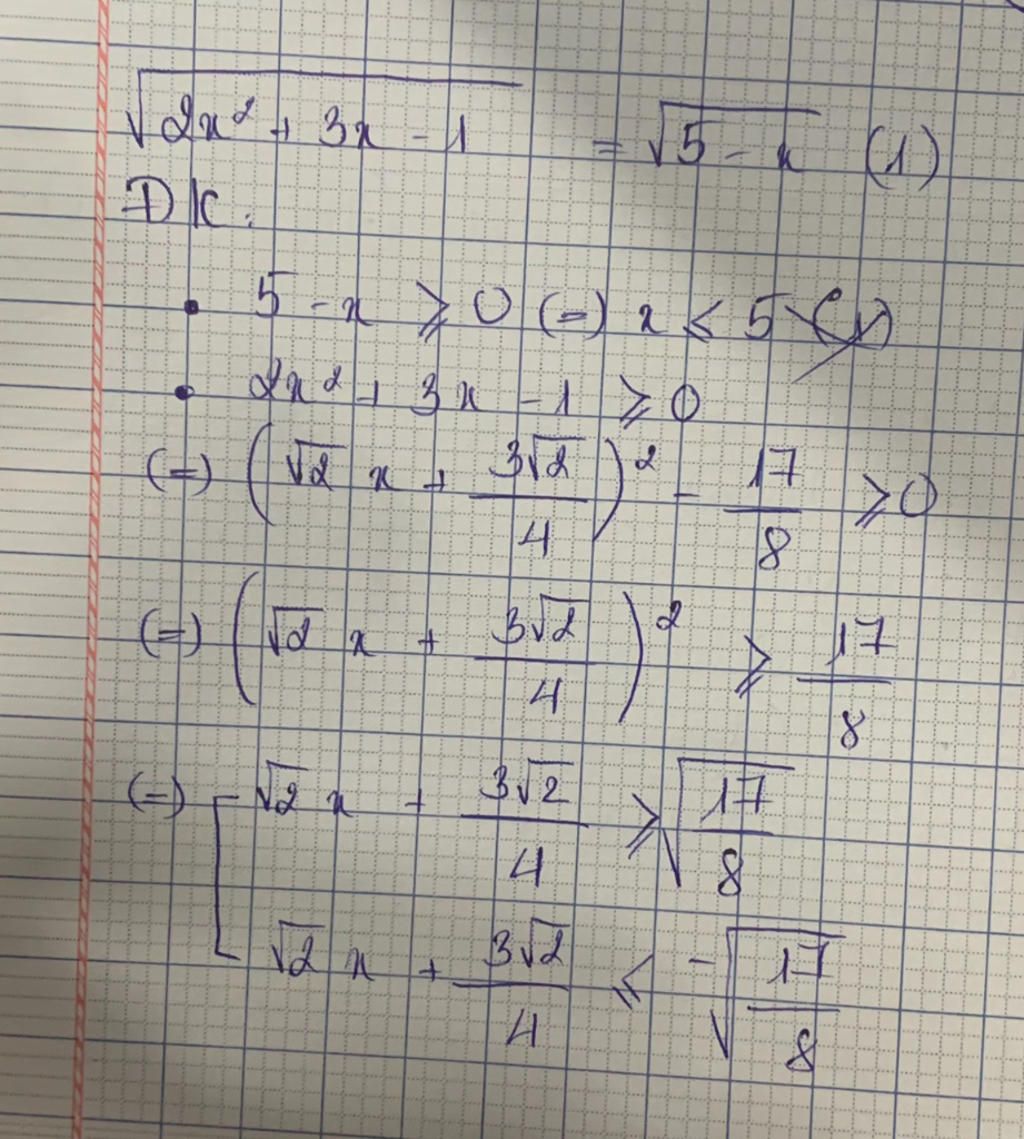 √(2x² + 3x - 1) = √(5 - x) (1)
ĐK:
• 5 - x ⩾ 0 (=) x ⩽ 5
• 2x² + 3x - 1 ⩾ 0
(=) (√2 x + 3√2/4)² - 17/8 ⩾ 0
(=) (√2 x + 3√2/4)² ⩾ 17/8
(=) [ √2 x + 3√2/4 ⩾ √(17/8)
√2 x + 3√2/4 ⩽ -√(17/8)